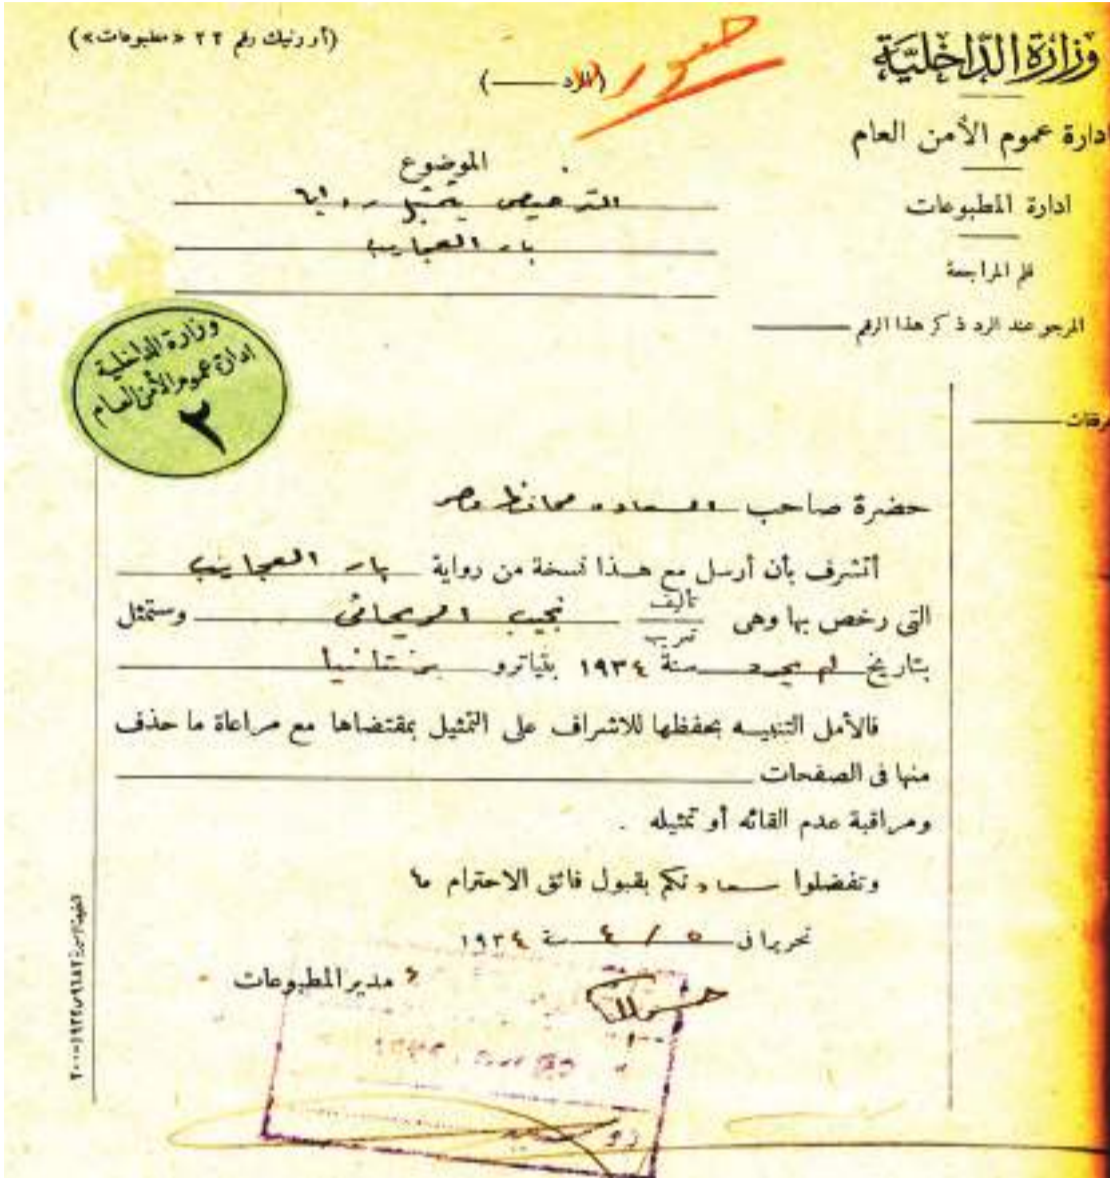 وزارة الداخلية
ادارة عموم الأمن العام
ادارة المطبوعات
قلم المراجعة
المرجو عند الرد ذكر هذا الرقم
مرفقات
(أورنيك رقم ٢٢ «مطبوعات»)
(الرد)
الموضوع
الترخيص بتمثيل رواية
بار العجايب
وزارة الداخلية
ادارة عموم الأمن العام
٢
حضرة صاحب السعادة محافظ مصر
أتشرف بأن أرسل مع هذا نسخة من رواية بار العجايب
التى رخص بها وهى تأليف تعريب نجيب الريحانى وستمثل
بتاريخ لم يحدد سنة ١٩٣٤ بتياترو برنتانيا
فالأمل التنبيه بحفظها للاشراف على التمثيل بمقتضاها مع مراعاة ما حذف
منها فى الصفحات
ومراقبة عدم القائه أو تمثيله .
وتفضلوا سعادتكم بقبول فائق الاحترام
تحريرا فى ٥ / ٤ سنة ١٩٣٤
مدير المطبوعات